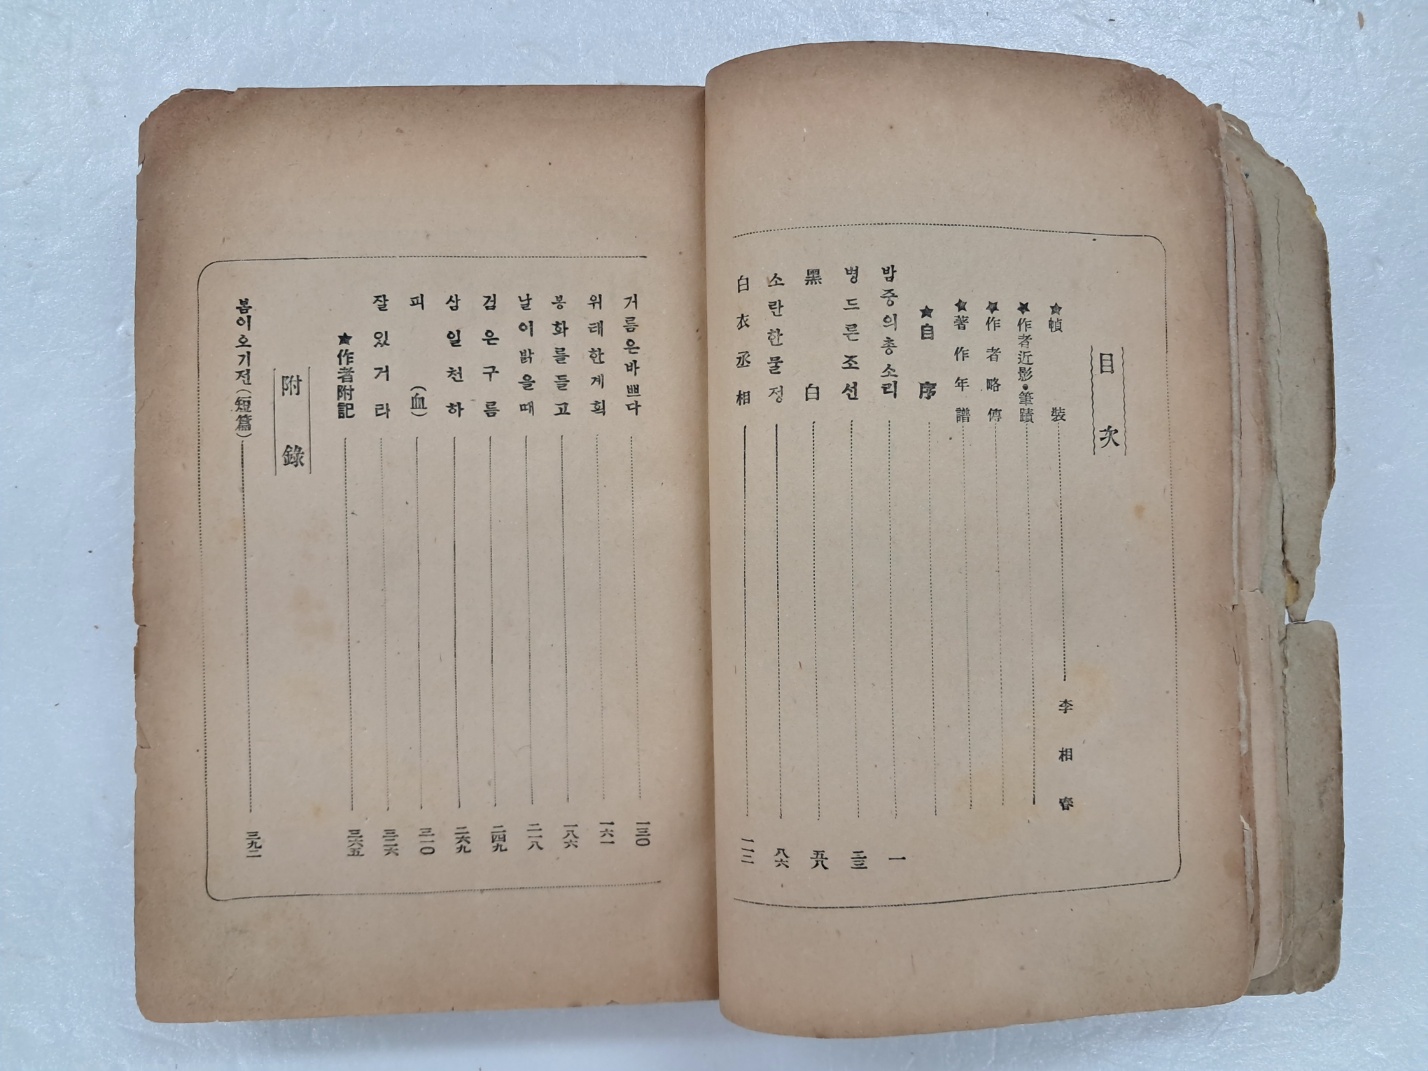 目次
★幀裝 李相春
★作者近影・筆蹟
★作者略傳
★著作年譜
★自序
밤중의총소리 一
병드른조선 二三
黑白 五八
소란한물정 八六
白衣丞相 一一二
거름은바쁘다 一三〇
위태한계획 一六一
봉화를들고 一八六
날이밝을때 二一八
검은구름 二四九
삼일천하 二六九
피(血) 三一〇
잘있거라 三二六
★作者附記 三六五
附錄
봄이오기전(短篇) 三九二